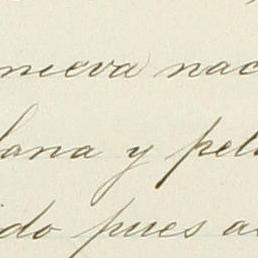 nueva nac
lana y pel
ido pues a